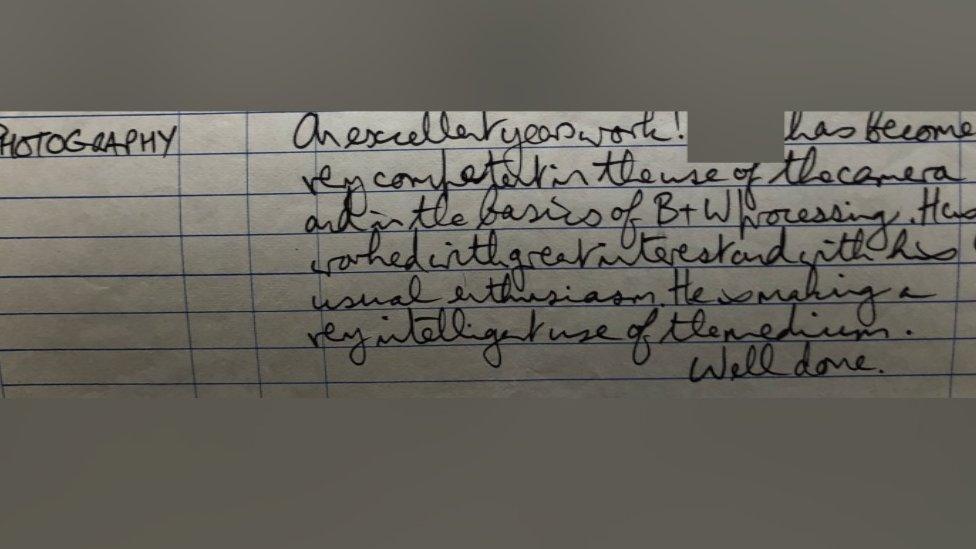 PHOTOGRAPHY
An excellent years work! has become
very competent in the use of the camera
and in the basics of B+W processing. He has
worked with great interest and with his
usual enthusiasm. He is making a
very intelligent use of the medium.
Well done.